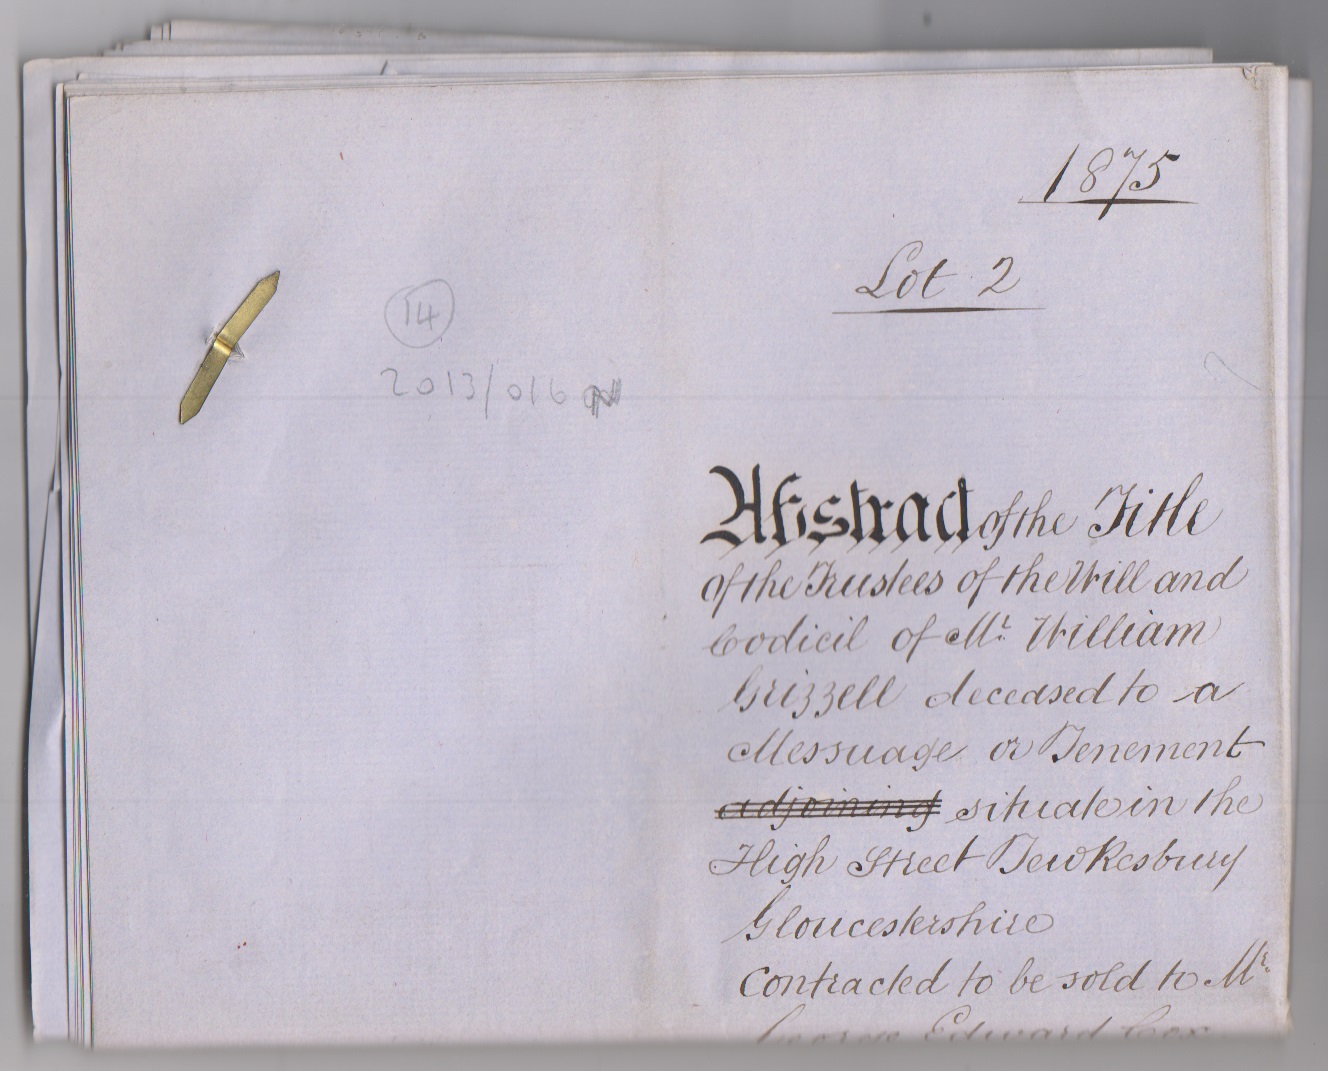 1875
Lot 2
14
2013/016
Abstract of the Title
of the Trustees of the Will and
Codicil of Mr. William
Grizzell deceased to a
Messuage or Tenement
adjoining situate in the
High Street Tewkesbury
Gloucestershire
contracted to be sold to Mr.
George Edward Cox